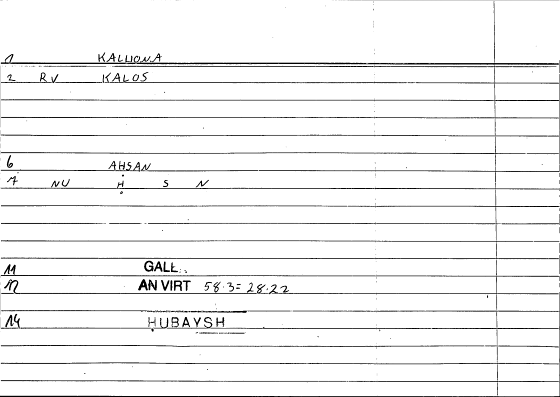 1 KALLIONA
2 RV KALOS
6 AHSAN
7 NU Ḥ S N
11 GALL
12 AN VIRT 58.3= 28.22
14 ḤUBAYSH